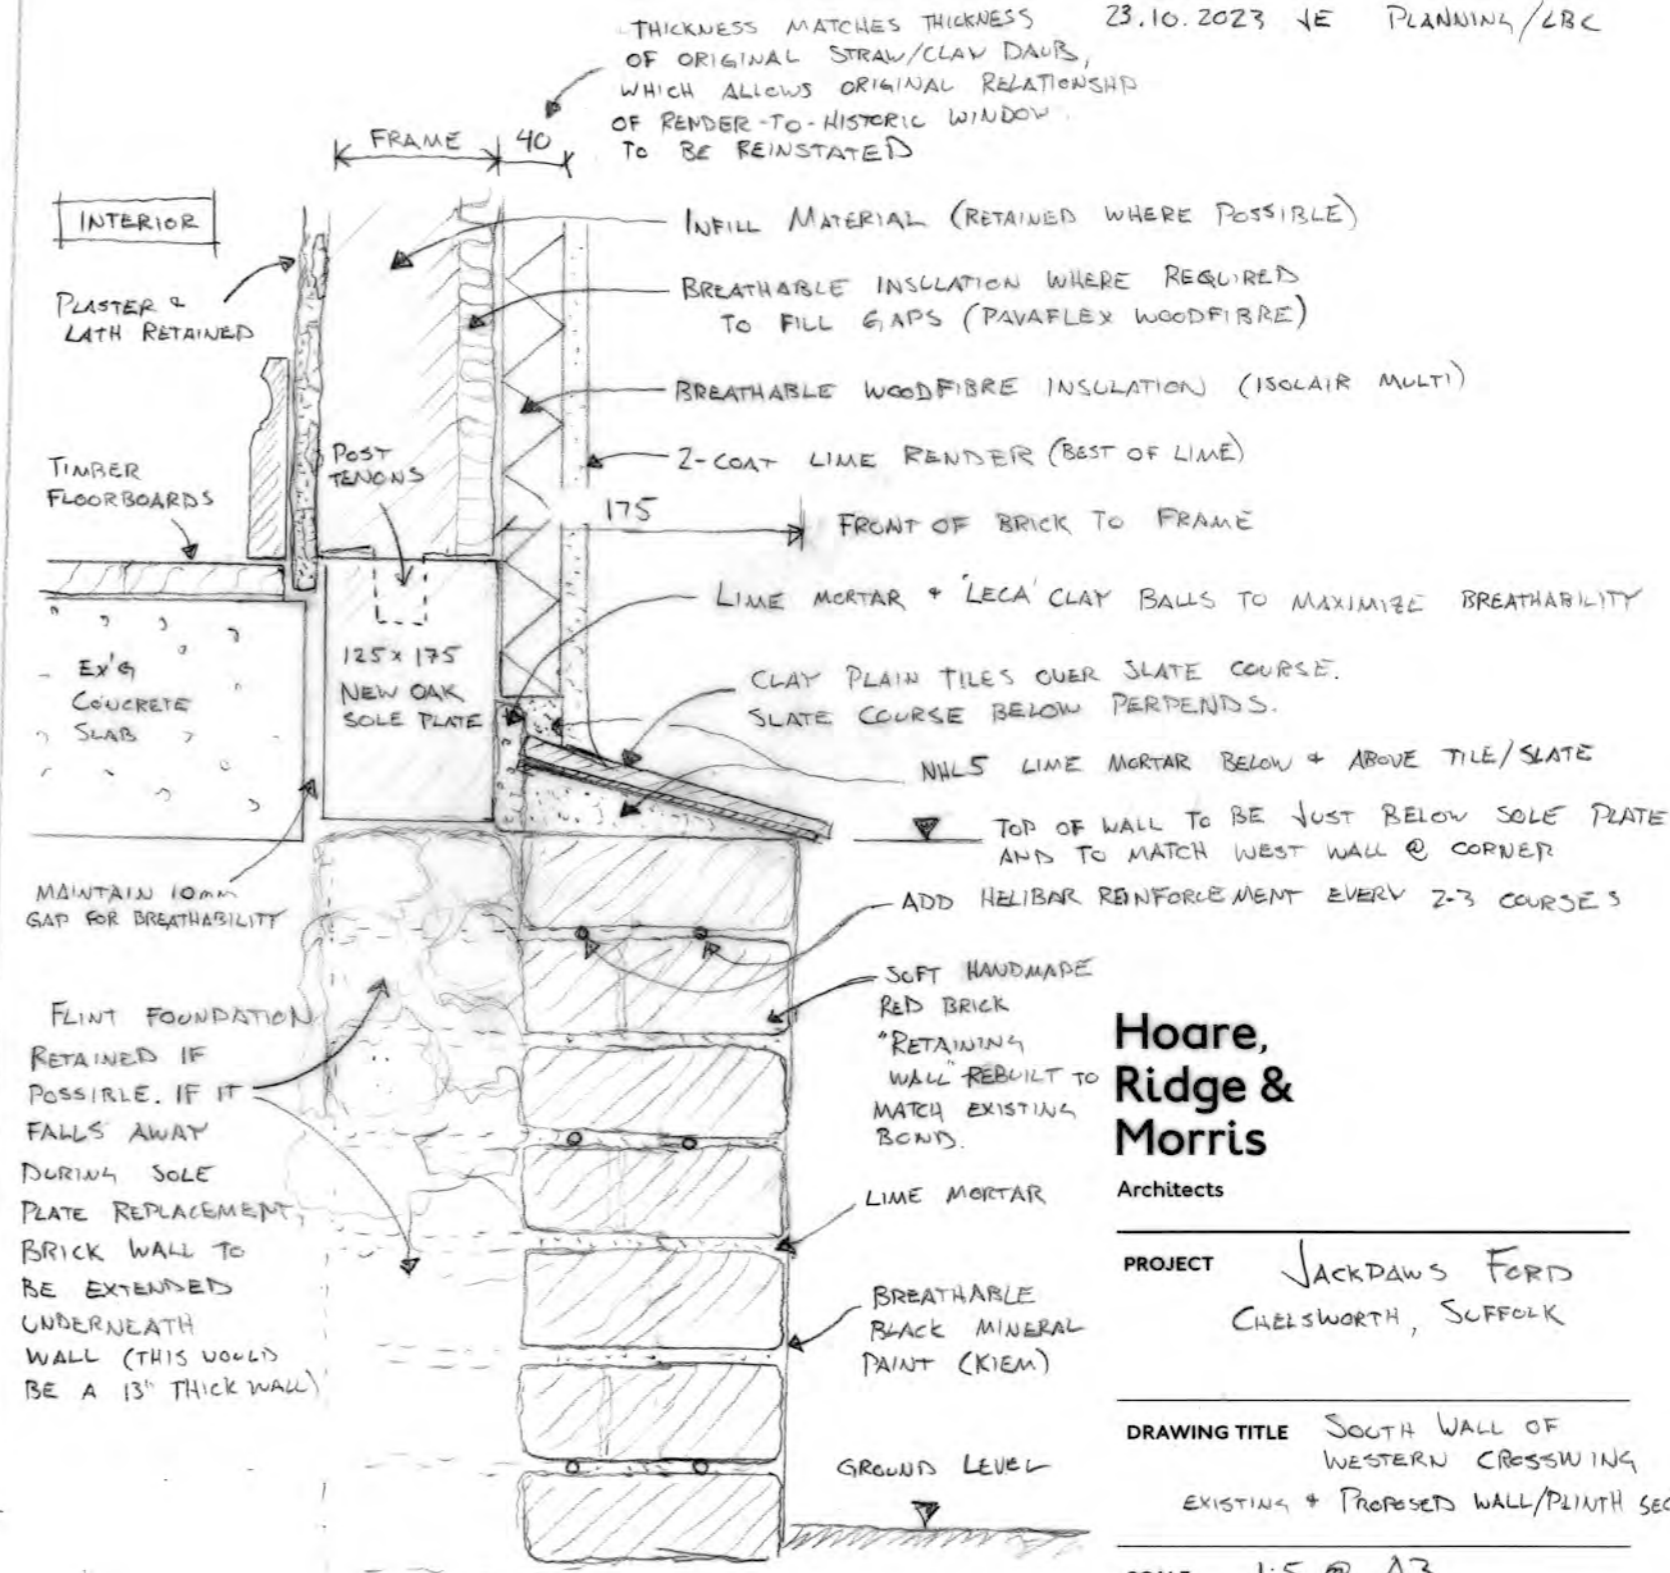 THICKNESS MATCHES THICKNESS
OF ORIGINAL STRAW/CLAY DAUB,
WHICH ALLOWS ORIGINAL RELATIONSHP
OF RENDER-TO-HISTORIC WINDOW
TO BE REINSTATED
23.10.2023 JE PLANNING/LBC
FRAME
40
INTERIOR
PLASTER &
LATH RETAINED
INFILL MATERIAL (RETAINED WHERE POSSIBLE)
BREATHABLE INSULATION WHERE REQUIRED
TO FILL GAPS (PAVAFLEX WOODFIBRE)
BREATHABLE WOODFIBRE INSULATION (ISOLAIR MULTI)
2-COAT LIME RENDER (BEST OF LIME)
TIMBER
FLOORBOARDS
POST
TENONS
175
FRONT OF BRICK TO FRAME
LIME MORTAR & 'LECA' CLAY BALLS TO MAXIMIZE BREATHABILITY
EX'G
CONCRETE
SLAB
125 x 175
NEW OAK
SOLE PLATE
CLAY PLAIN TILES OVER SLATE COURSE.
SLATE COURSE BELOW PERPENDS.
NHL5 LIME MORTAR BELOW & ABOVE TILE/SLATE
TOP OF WALL TO BE JUST BELOW SOLE PLATE
AND TO MATCH WEST WALL @ CORNER
MAINTAIN 10mm
GAP FOR BREATHABILITY
ADD HELIBAR REINFORCEMENT EVERY 2-3 COURSES
SOFT HANDMADE
RED BRICK
"RETAINING
WALL" REBUILT TO
MATCH EXISTING
BOND.
FLINT FOUNDATION
RETAINED IF
POSSIBLE. IF IT
FALLS AWAY
DURING SOLE
PLATE REPLACEMENT,
BRICK WALL TO
BE EXTENDED
UNDERNEATH
WALL (THIS WOULD
BE A 13" THICK WALL)
LIME MORTAR
BREATHABLE
BLACK MINERAL
PAINT (KIEM)
GROUND LEVEL
Hoare,
Ridge &
Morris
Architects
PROJECT JACKDAWS FORD
CHELSWORTH, SUFFOLK
DRAWING TITLE SOUTH WALL OF
WESTERN CROSSWING
EXISTING & PROPOSED WALL/PLINTH SEC
SCALE 1:5 @ A3